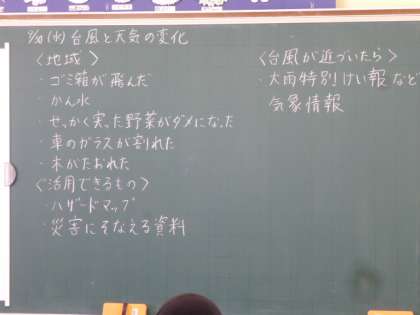 (水) 台風と天気の変化
〈地域〉
・ゴミ箱が飛んだ
・かん水
・せっかく実った野菜がダメになった
・車のガラスが割れた
・木がたおれた
〈活用できるもの〉
・ハザードマップ
・災害にそなえる資料
〈台風が近づいたら〉
・大雨特別けい報など
気象情報